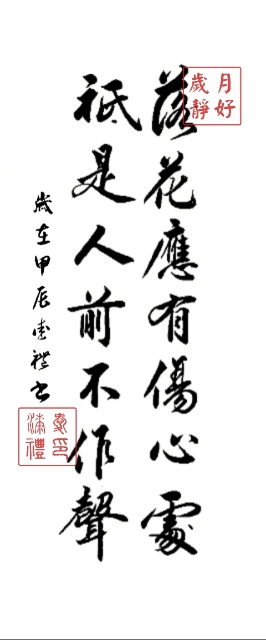 歲月靜好
落花應有傷心處
祗是人前不作聲
歲在甲辰禮书
禮印